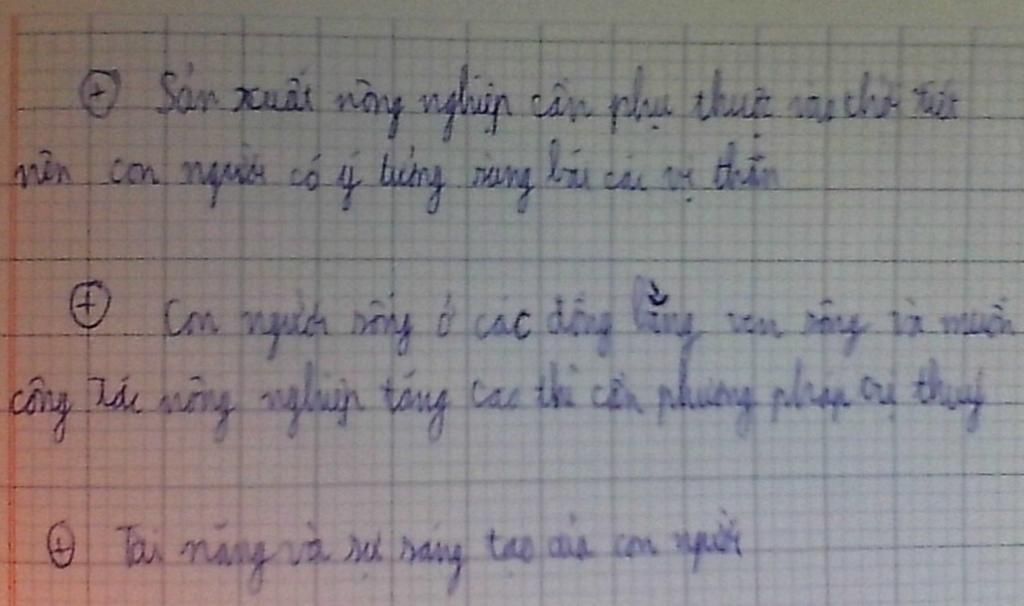 ⊕ Sản xuất nông nghiệp cần phụ thuộc vào thời tiết
nên con người có ý tưởng sùng bái các vị thần
⊕ Con người sống ở các đồng bằng ven sông và muốn
công tác nông nghiệp tăng cao thì cần phương pháp trị thuỷ
⊕ Tài năng và sự sáng tạo của con người